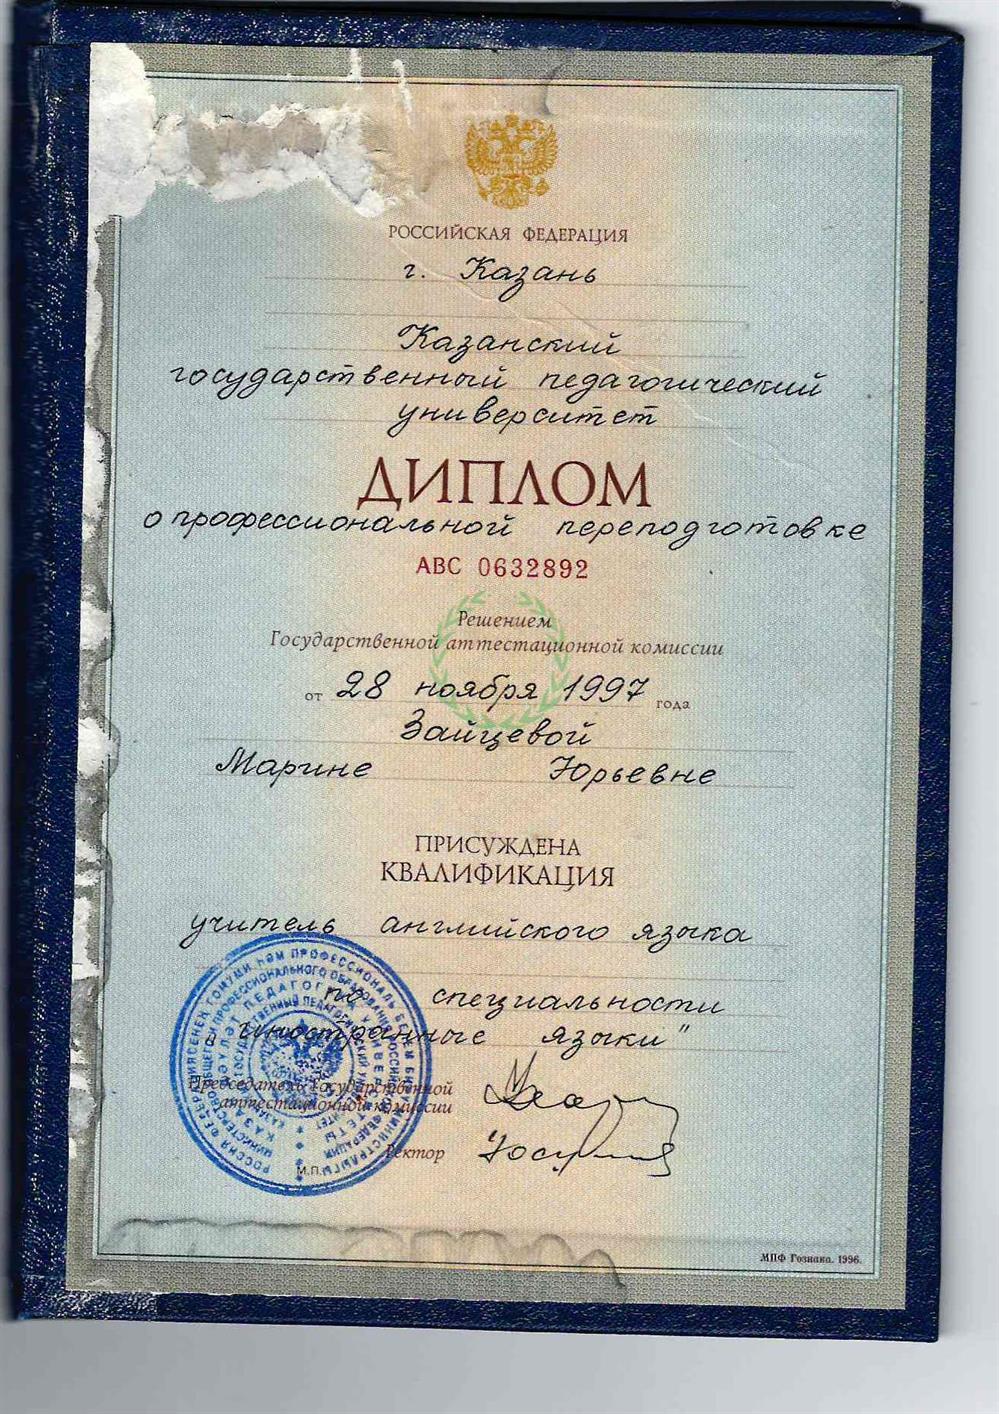 РОССИЙСКАЯ ФЕДЕРАЦИЯ
г. Казань
Казанский
государственный педагогический
университет
ДИПЛОМ
о профессиональной переподготовке
АВС 0632892
Решением
Государственной аттестационной комиссии
от 28 ноября 1997 года
Зайцевой
Марине Юрьевне
ПРИСУЖДЕНА
КВАЛИФИКАЦИЯ
учитель английского языка
по специальности
„иностранные языки"
Председатель Государственной
аттестационной комиссии
Ректор
М.П.
МПФ Гознака. 1996.